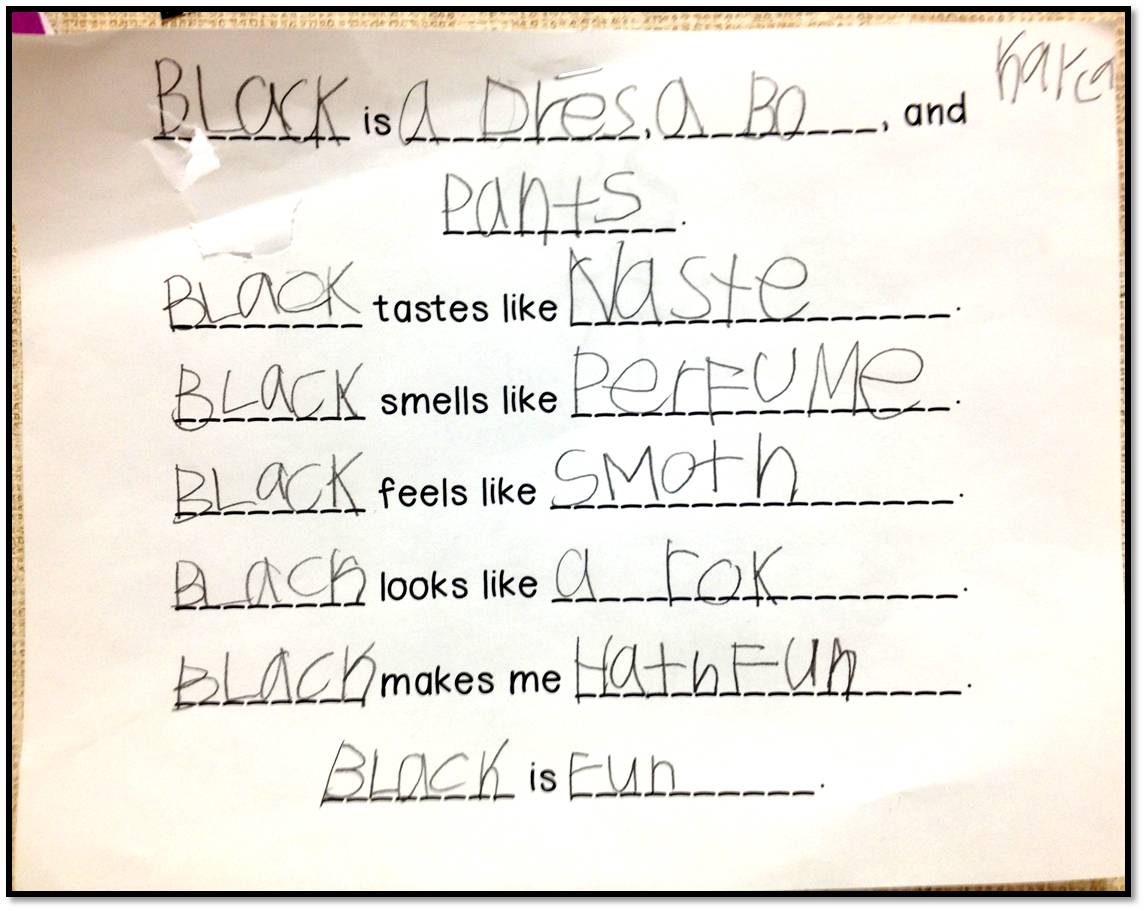 BLACK is a Dres, a Bo, and
pants.
BLACK tastes like Naste.
BLACK smells like PerFUMe.
BLACK feels like SMoth.
BLACK looks like a rok.
BLACK makes me HathFun.
BLACK is Fun.